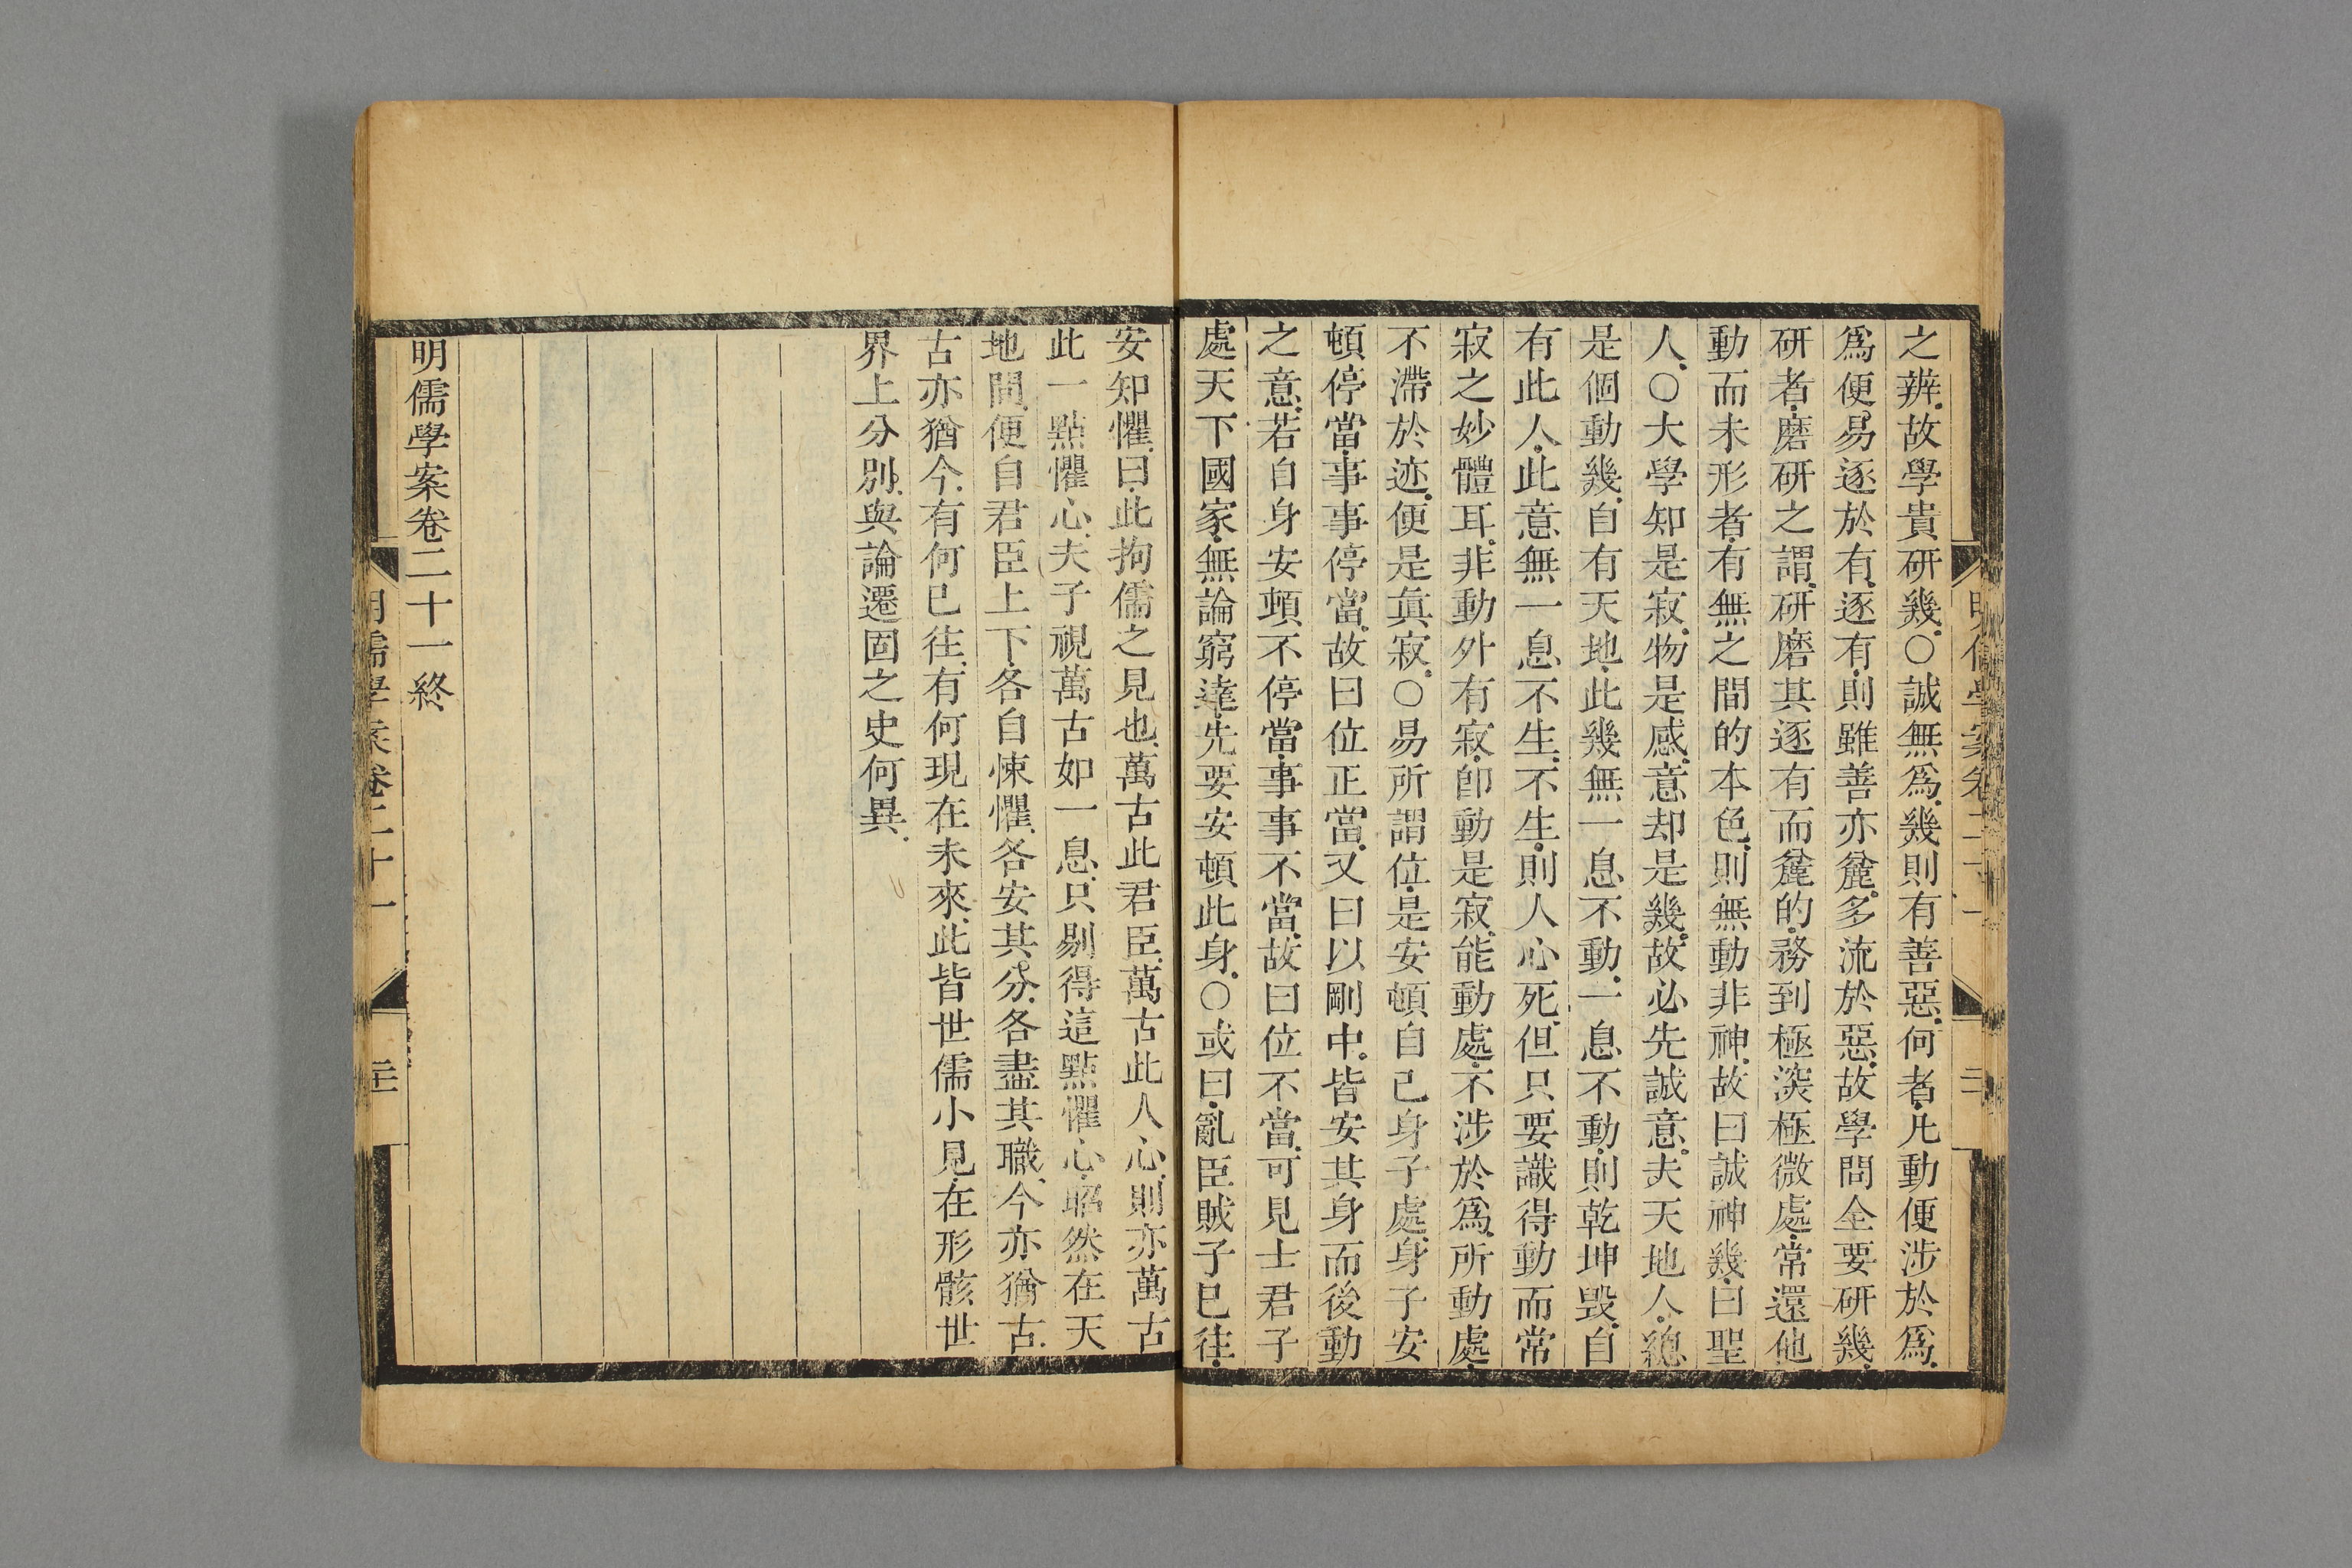 之辨故學貴研幾○誠無爲幾則有善惡何者凡動便涉於爲
爲便易逐於有逐有則雖善亦麄多流於惡故學問全要研幾
研者磨研之謂研磨其逐有而麄的務到極深極微處常還他
動而未形者有無之間的本色則無動非神故曰誠神幾曰聖
人○大學知是寂物是感意却是幾故必先誠意夫天地人總
是個動幾自有天地此幾無一息不動一息不動則乾坤毀自
有此人此意無一息不生不生則人心死但只要識得動而常
寂之妙體耳非動外有寂卽動是寂能動處不涉於爲所動處
不滯於迹便是眞寂○易所謂位是安頓自己身子處身子安
頓停當事事停當故曰位正當又曰以剛中皆安其身而後動
之意若自身安頓不停當事事不當故曰位不當可見士君子
處天下國家無論窮達先要安頓此身○或曰亂臣賊子已往
安知懼曰此拘儒之見也萬古此君臣萬古此人心則亦萬古
此一點懼心夫子視萬古如一息只剔得這點懼心昭然在天
地間便自君臣上下各自悚懼各安其分各盡其職今亦猶古
古亦猶今有何已往有何現在未來此皆世儒小見在形骸世
界上分別與論遷固之史何異
明儒學案卷二十一終
明儒學案卷二十一